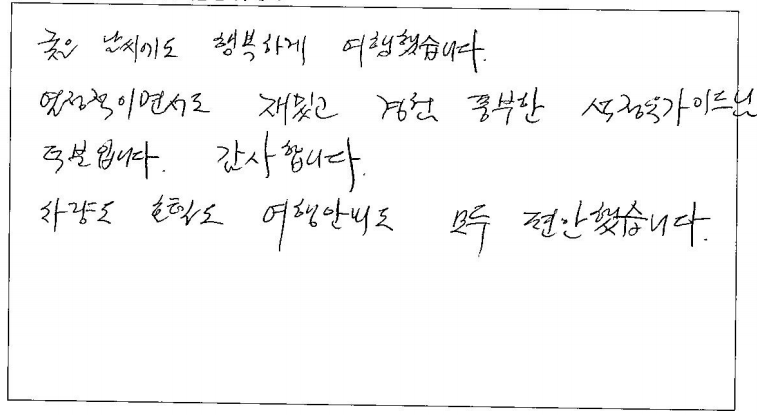 궂은 날씨에도 행복하게 여행했습니다.
열정적이면서도 재밌고 경험 풍부한 가이드님
덕분입니다. 감사합니다.
차량도 호텔도 여행안내도 모두 편안했습니다.